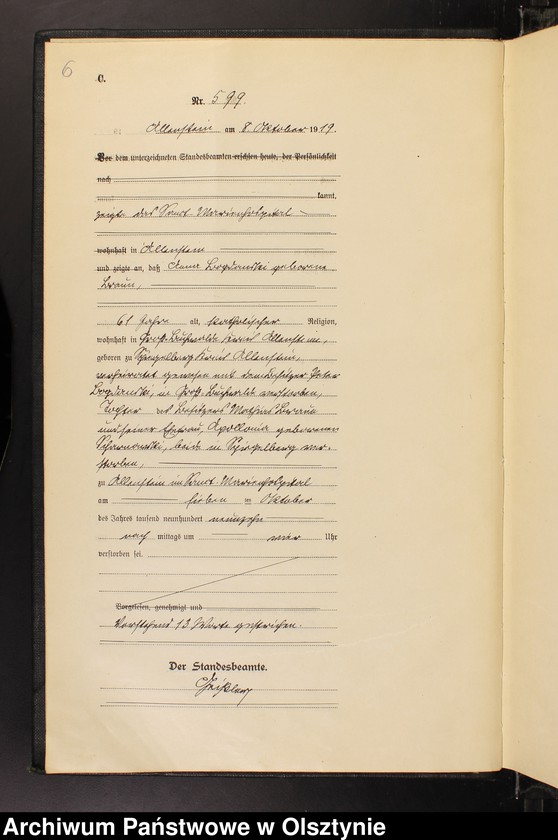 6
C.
Nr. 599.
Allenstein am 8. Oktober 1919.
Vor dem unterzeichneten Standesbeamten erschien heute, der Persönlichkeit
nach
kannt,
zeigte das Sanct-Marienhospital
wohnhaft in Allenstein
und zeigte an, daß Anna Bogdanski geborene
Braun,
61 Jahre alt, katholischer Religion,
wohnhaft in Groß Buchwalde Kreis Allenstein,
geboren zu Spiegelberg Kreis Allenstein,
verheiratet gewesen mit dem Besitzer Peter
Bogdanski, in Groß Buchwalde verstorben,
Tochter des Besitzers Braun
und seiner Ehefrau, Apollonia geborenen
beide in Spiegelberg ver-
storben,
zu Allenstein im Sanct-Marienhospital
am sieben ten Oktober
des Jahres tausend neunhundert neunzehn
nach mittags um vier Uhr
verstorben sei.
Vorgelesen, genehmigt und
Vorstehend 13 Worte gestrichen.
Der Standesbeamte.
Archiwum Państwowe w Olsztynie